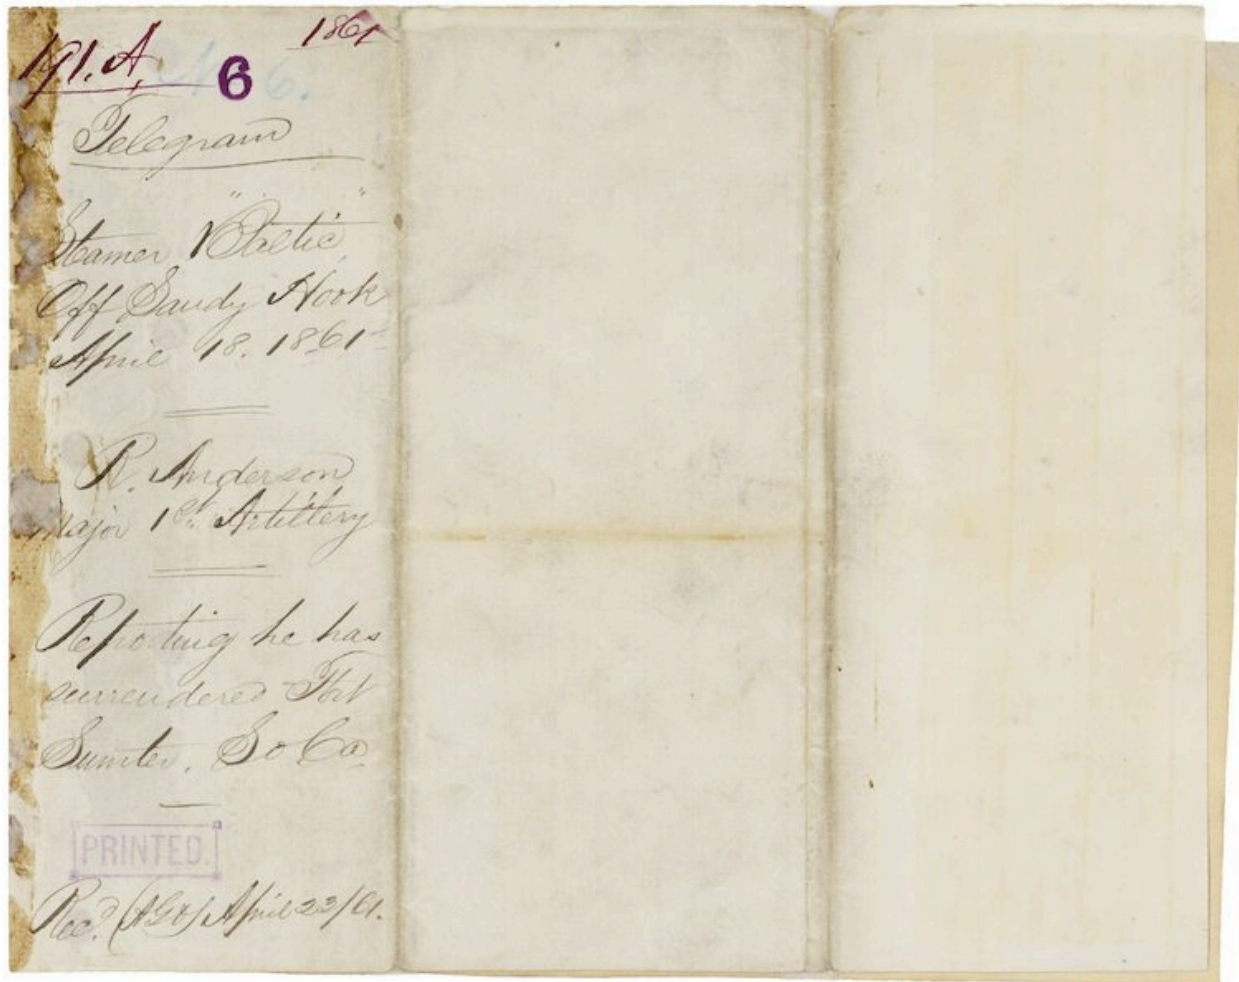 191. A. 1861
No 6. 6
Telegram
Steamer "Baltic"
Off Sandy Hook
April 18. 1861
R. Anderson
Major 1st Artillery
Reporting he has
surrendered Fort
Sumter. So Ca
PRINTED.
Recd. (AGO) April 22/61.